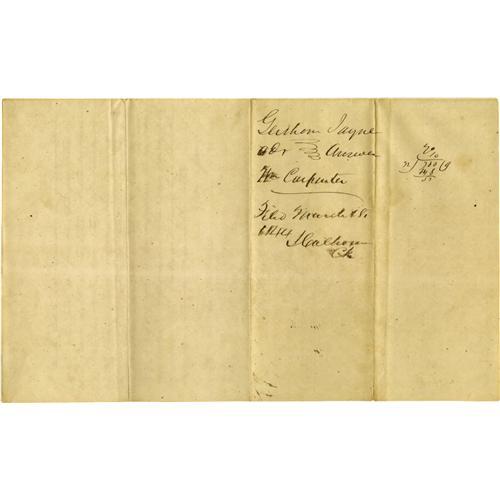 Gershom Jayne
ads Answer
Wm Carpenter
Filed March 18.
1844
J Calhoun
Clk